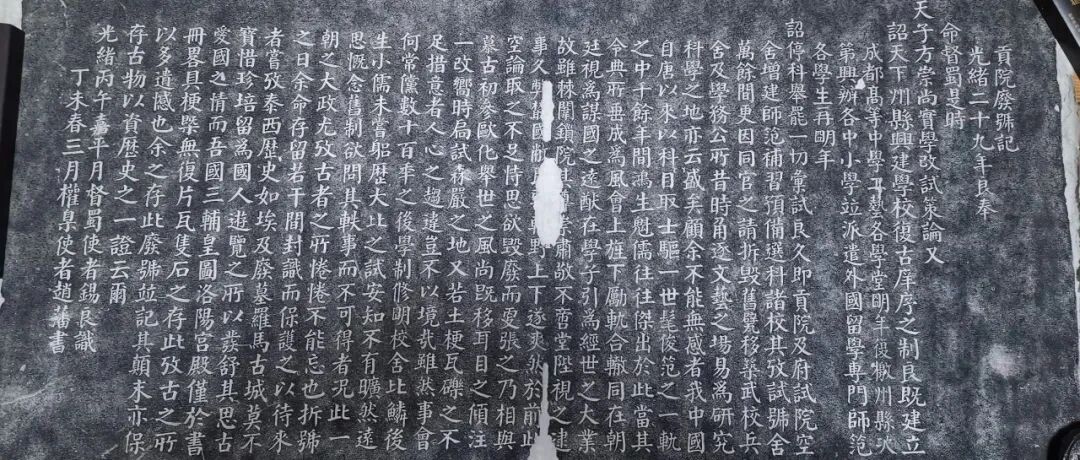 貢院廢號記
光緒二十九年良奉
命督蜀是時
天子方崇尚實學改試策論又
詔天下州縣興建學校復古庠序之制良既建立
成都高等中學工藝各學堂明年復檄州縣次
第興辦各中小學並派遣外國留學專門師範
各學生再明年
詔停科舉罷一切彙試良久即貢院及府試院空
舍增建師範補習預備選科諸校其攷試號舍
萬餘間更因同官之請拆毀舊甓移築武校兵
舍及學務公所昔時角逐文藝之場易為研究
科學之地亦云盛矣顧余不能無感者我中國
自唐以來以科目取士驅一世髦俊範之一軌
之中千餘年間鴻生魁儒往往傑出於此當其
令典所垂成為風會上旌下勵軌合轍同在朝
廷視為謀國之遠猷在學子引為經世之大業
故雖棘闈鎖院其崇肅敬不啻堂陛視之逮
事久國野上下遂爽然於前此
空論取之不足恃思欲毀廢而更張之乃相與
墓古初參歐化舉世之風尚既移耳目之傾注
一改嚮時局試森嚴之地又若土梗瓦礫之不
足措意者人心之趨違豈不以境哉雖然事會
何常儻數十百年之後學制修明校舍比鱗後
生小儒未嘗躬歷大比之試安知不有曠然遠
思慨念舊制欲問其軼事而不可得者況此一
朝之大政尤攷古者之所惓惓不能忘也拆號
之日余命存留若干間封識而保護之以待來
者嘗攷泰西歷史如埃及廢墓羅馬古城莫不
寶惜珍培留為國人遊覽之所以發舒其思古
愛國之情而吾國三輔皇圖洛陽宮殿僅於書
冊畧具梗槩無復片瓦隻石之存此攷古之所
以多遺憾也余之存此廢號並記其顛末亦保
存古物以資歷史之一證云爾
光緒丙午嘉平月督蜀使者錫良識
丁未春三月權臬使者趙藩書